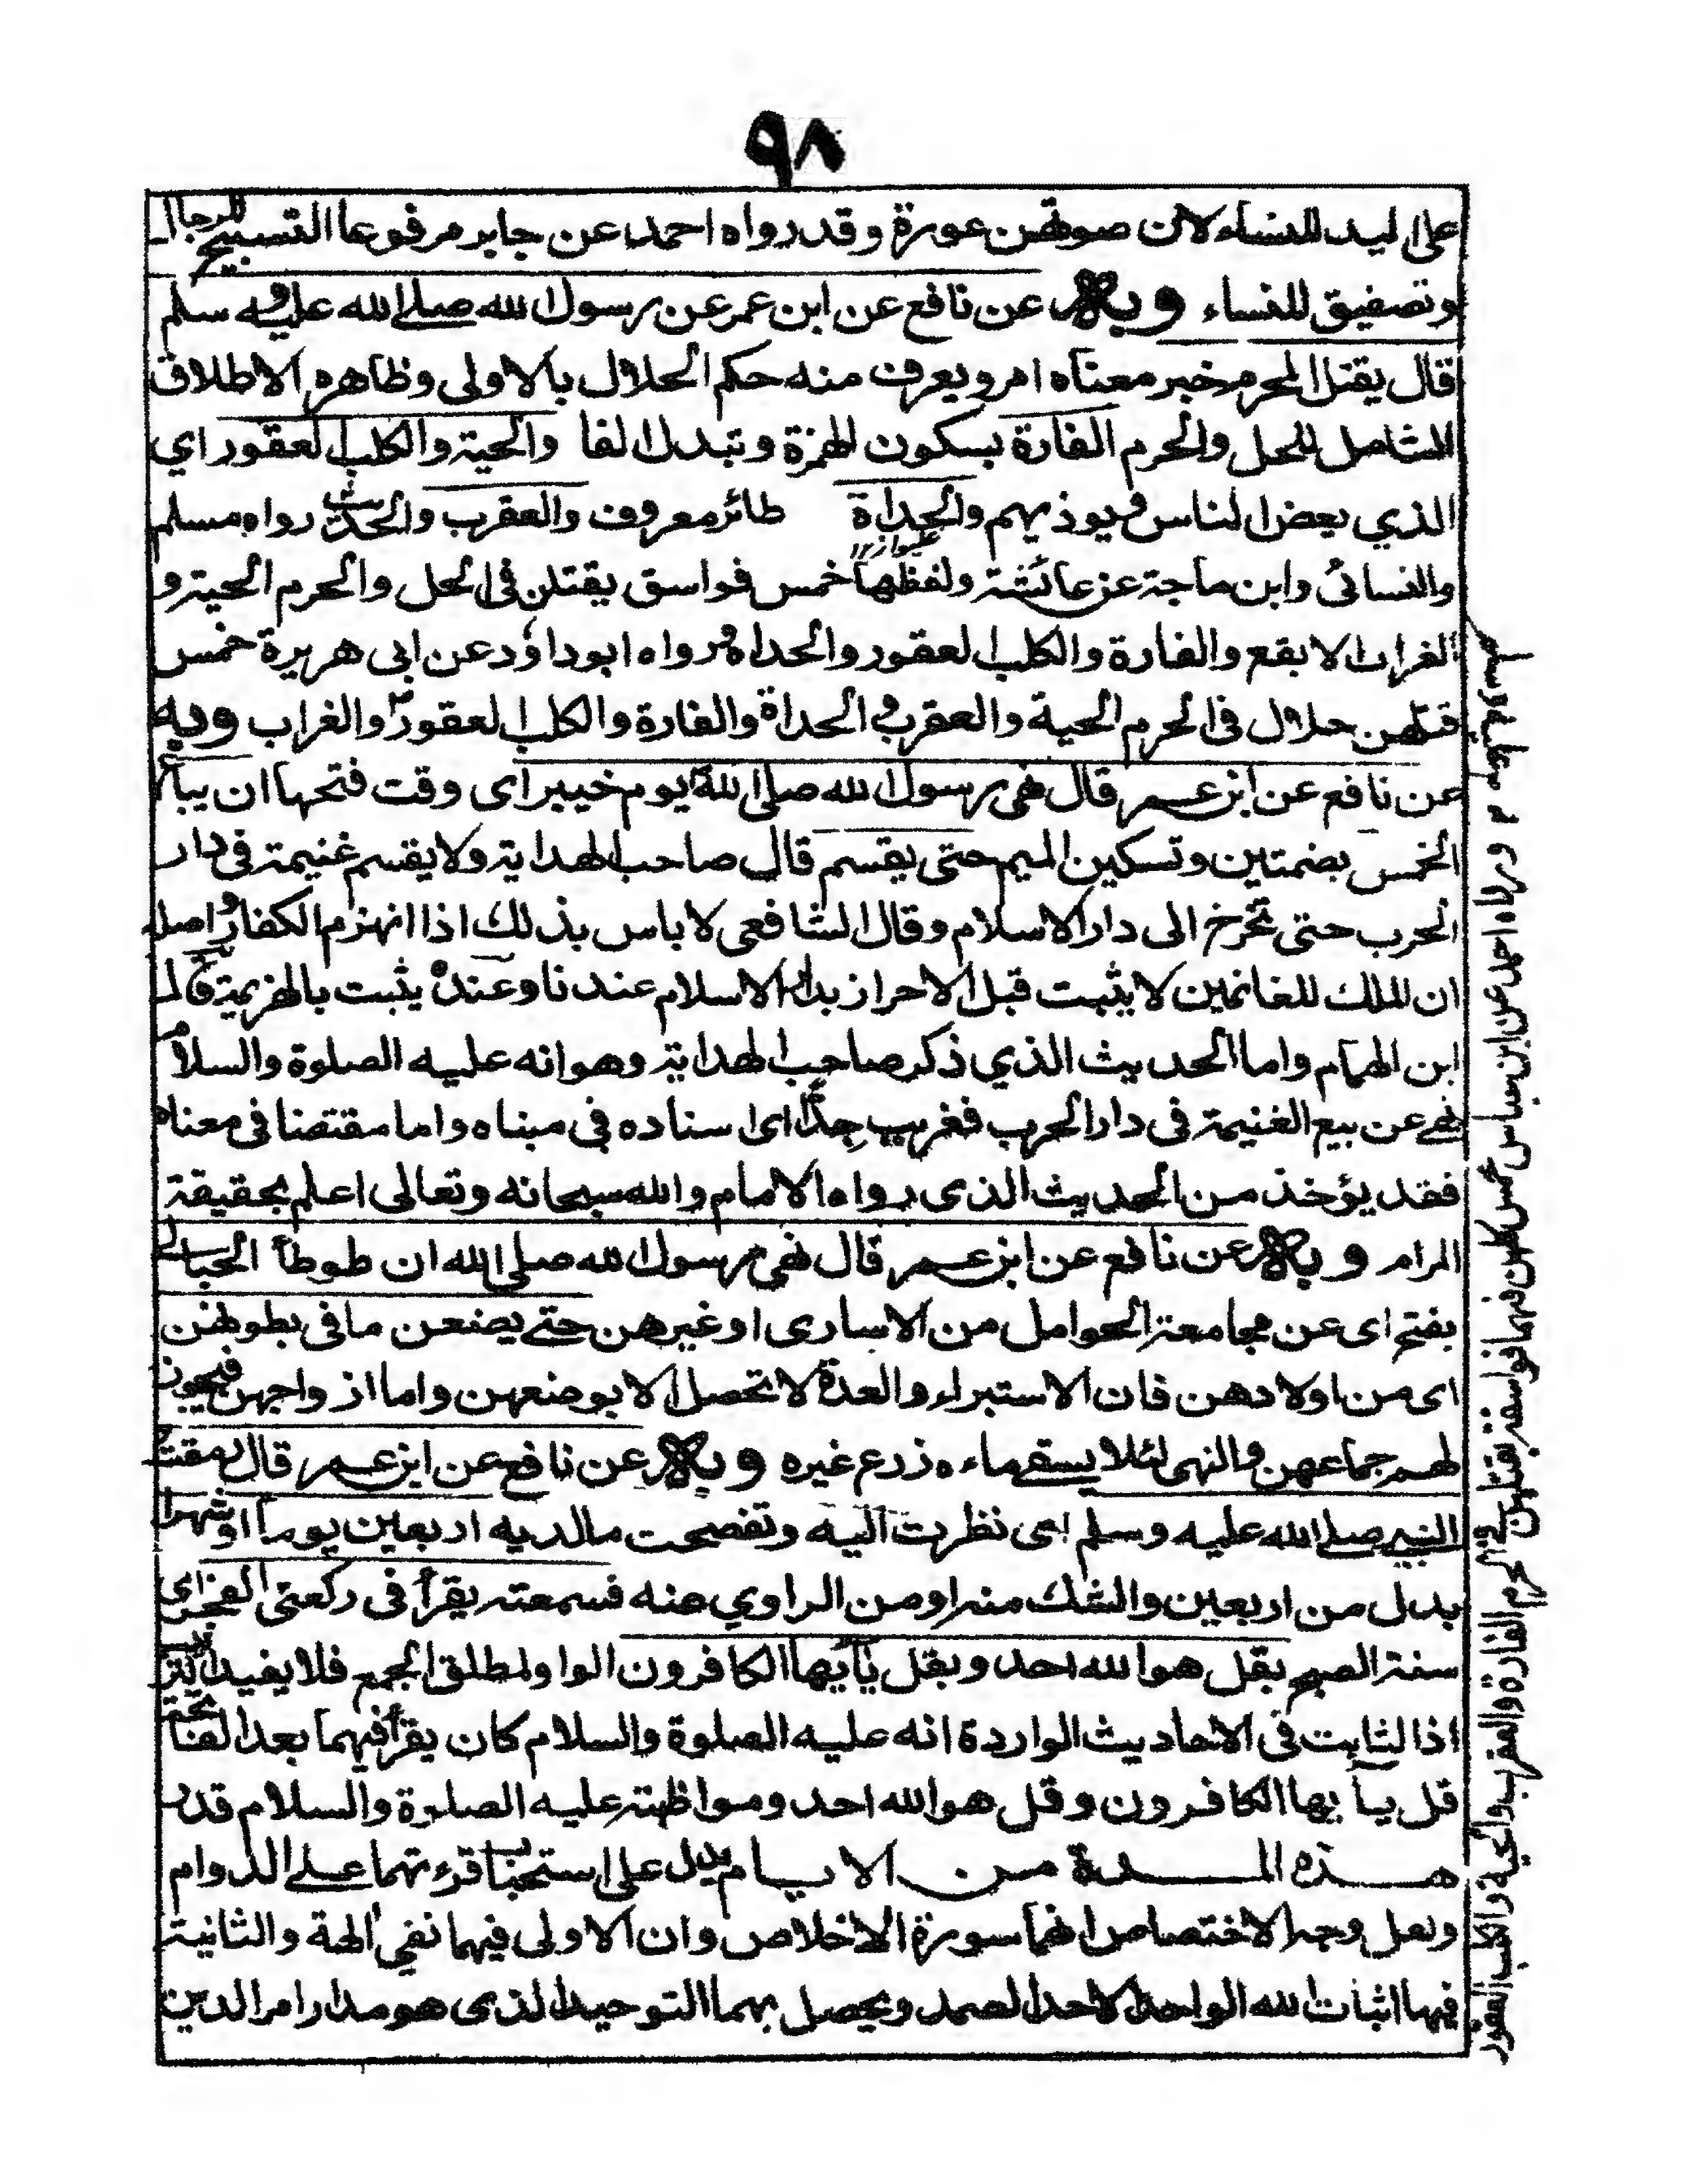 ٩٨
على اليد للنساء لان صوتهن عورة وقد رواه احمد عن جابر مرفوعا التسبيح للرجال
وتصفيق للنساء وبه عن نافع عن ابن عمر عن رسول الله صلى الله عليه وسلم
قال يقتل المحرم خبر معناه امر ويعرف منه حكم الحلال بالاولى وظاهره الاطلاق
الشامل للحل والحرم الفارة بسكون الهمزة وتبدل الفا والحية والكلب العقور اي
الذي يعض الناس ويوذيهم والحداة طائر معروف والعقرب والحديث رواه مسلم
والنسائى وابن ماجة عن عائشة ولفظها خمس فواسق يقتلن فى الحل والحرم الحية و
الغراب الابقع والفارة والكلب العقور والحداة ورواه ابوداود عن ابى هريرة خمس
قتلهن حلال فى الحرم الحية والعقرب والحداة والفارة والكلب العقور والغراب وبه
عن نافع عن ابن عمر قال نهى رسول الله صلى الله يوم خيبر اى وقت فتحها ان يباع
الخمس بضمتين وتسكين الميم حتى يقسم قال صاحب الهداية ولا يقسم غنيمة فى دار
الحرب حتى تخرج الى دار الاسلام وقال الشافعى لا باس بذلك اذا انهزم الكفار واصله
ان الملك للغانمين لا يثبت قبل الاحراز بدار الاسلام عندنا وعنده يثبت بالهزيمة قال
ابن الهمام واما الحديث الذي ذكر صاحب الهداية وهو انه عليه الصلوة والسلام
نهى عن بيع الغنيمة فى دار الحرب فغريب جدًّا اى اسناده فى مبناه واما مقتضنا فى معناه
فقد يؤخذ من الحديث الذى رواه الامام والله سبحانه وتعالى اعلم بحقيقة
المرام وبه عن نافع عن ابن عمر قال نهى رسول الله صلى الله ان طوطأ الحبالى
بفتح اى عن مجامعة الحوامل من الاسارى او غيرهن حتى يضعن ما فى بطونهن
اى من اولادهن فان الاستبراء والعدة لا تحصل الا بوضعهن واما ازواجهن فيجوز
لهم جماعهن والنهى لئلا يسقى ماءه زرع غيره وبه عن نافع عن ابن عمر قال رمقت
النبى صلى الله عليه وسلم اى نظرت اليه وتفصحت مالديه اربعين يوما او شهرا
بدل من اربعين والشك منه او من الراوي عنه فسمعته يقرأ فى ركعتى الفجر اى
سنة الصبح بقل هو الله احد وبقل يآيها الكافرون الواو لمطلق الجمع فلا يفيد الترتيب
اذ الثابت فى الاحاديث الواردة انه عليه الصلوة والسلام كان يقرأ فيهما بعد الفاتحة
قل يآيها الكافرون وقل هو الله احد ومواظبته عليه الصلوة والسلام قدر
هذه المدة من الايام يدل على استحباب قرءتهما على الدوام
ولعل وجه الاختصاص انهما سورة الاخلاص وان الاولى فيهما نفي الهة والثانية
فيها اثبات الله الواحد الاحد الصمد ويحصل بهما التوحيد الذى هو مدار امر الدين
ورواه احمد عن ابن عباس خمس كلهن فهما فواسقة يقتلهن فى الحرم الفارة والعقرب والحية والكلب العقور